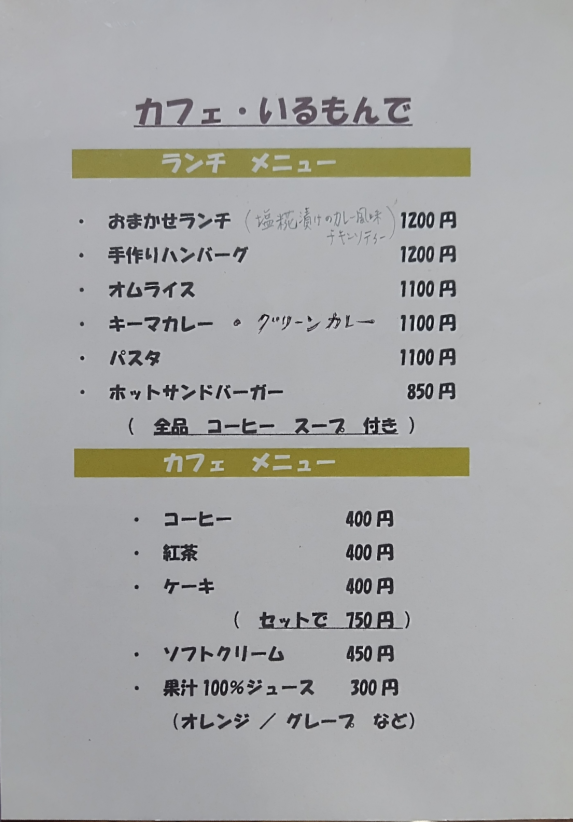 カフェ・いるもんで
ランチ メニュー
・ おまかせランチ (塩糀漬けのカレー風味 1200円
チキンソテー)
・ 手作りハンバーグ 1200円
・ オムライス 1100円
・ キーマカレー 。グリーンカレー 1100円
・ パスタ 1100円
・ ホットサンドバーガー 850円
( 全品 コーヒー スープ 付き )
カフェ メニュー
・ コーヒー 400円
・ 紅茶 400円
・ ケーキ 400円
( セットで 750円 )
・ ソフトクリーム 450円
・ 果汁100%ジュース 300円
(オレンジ / グレープ など)